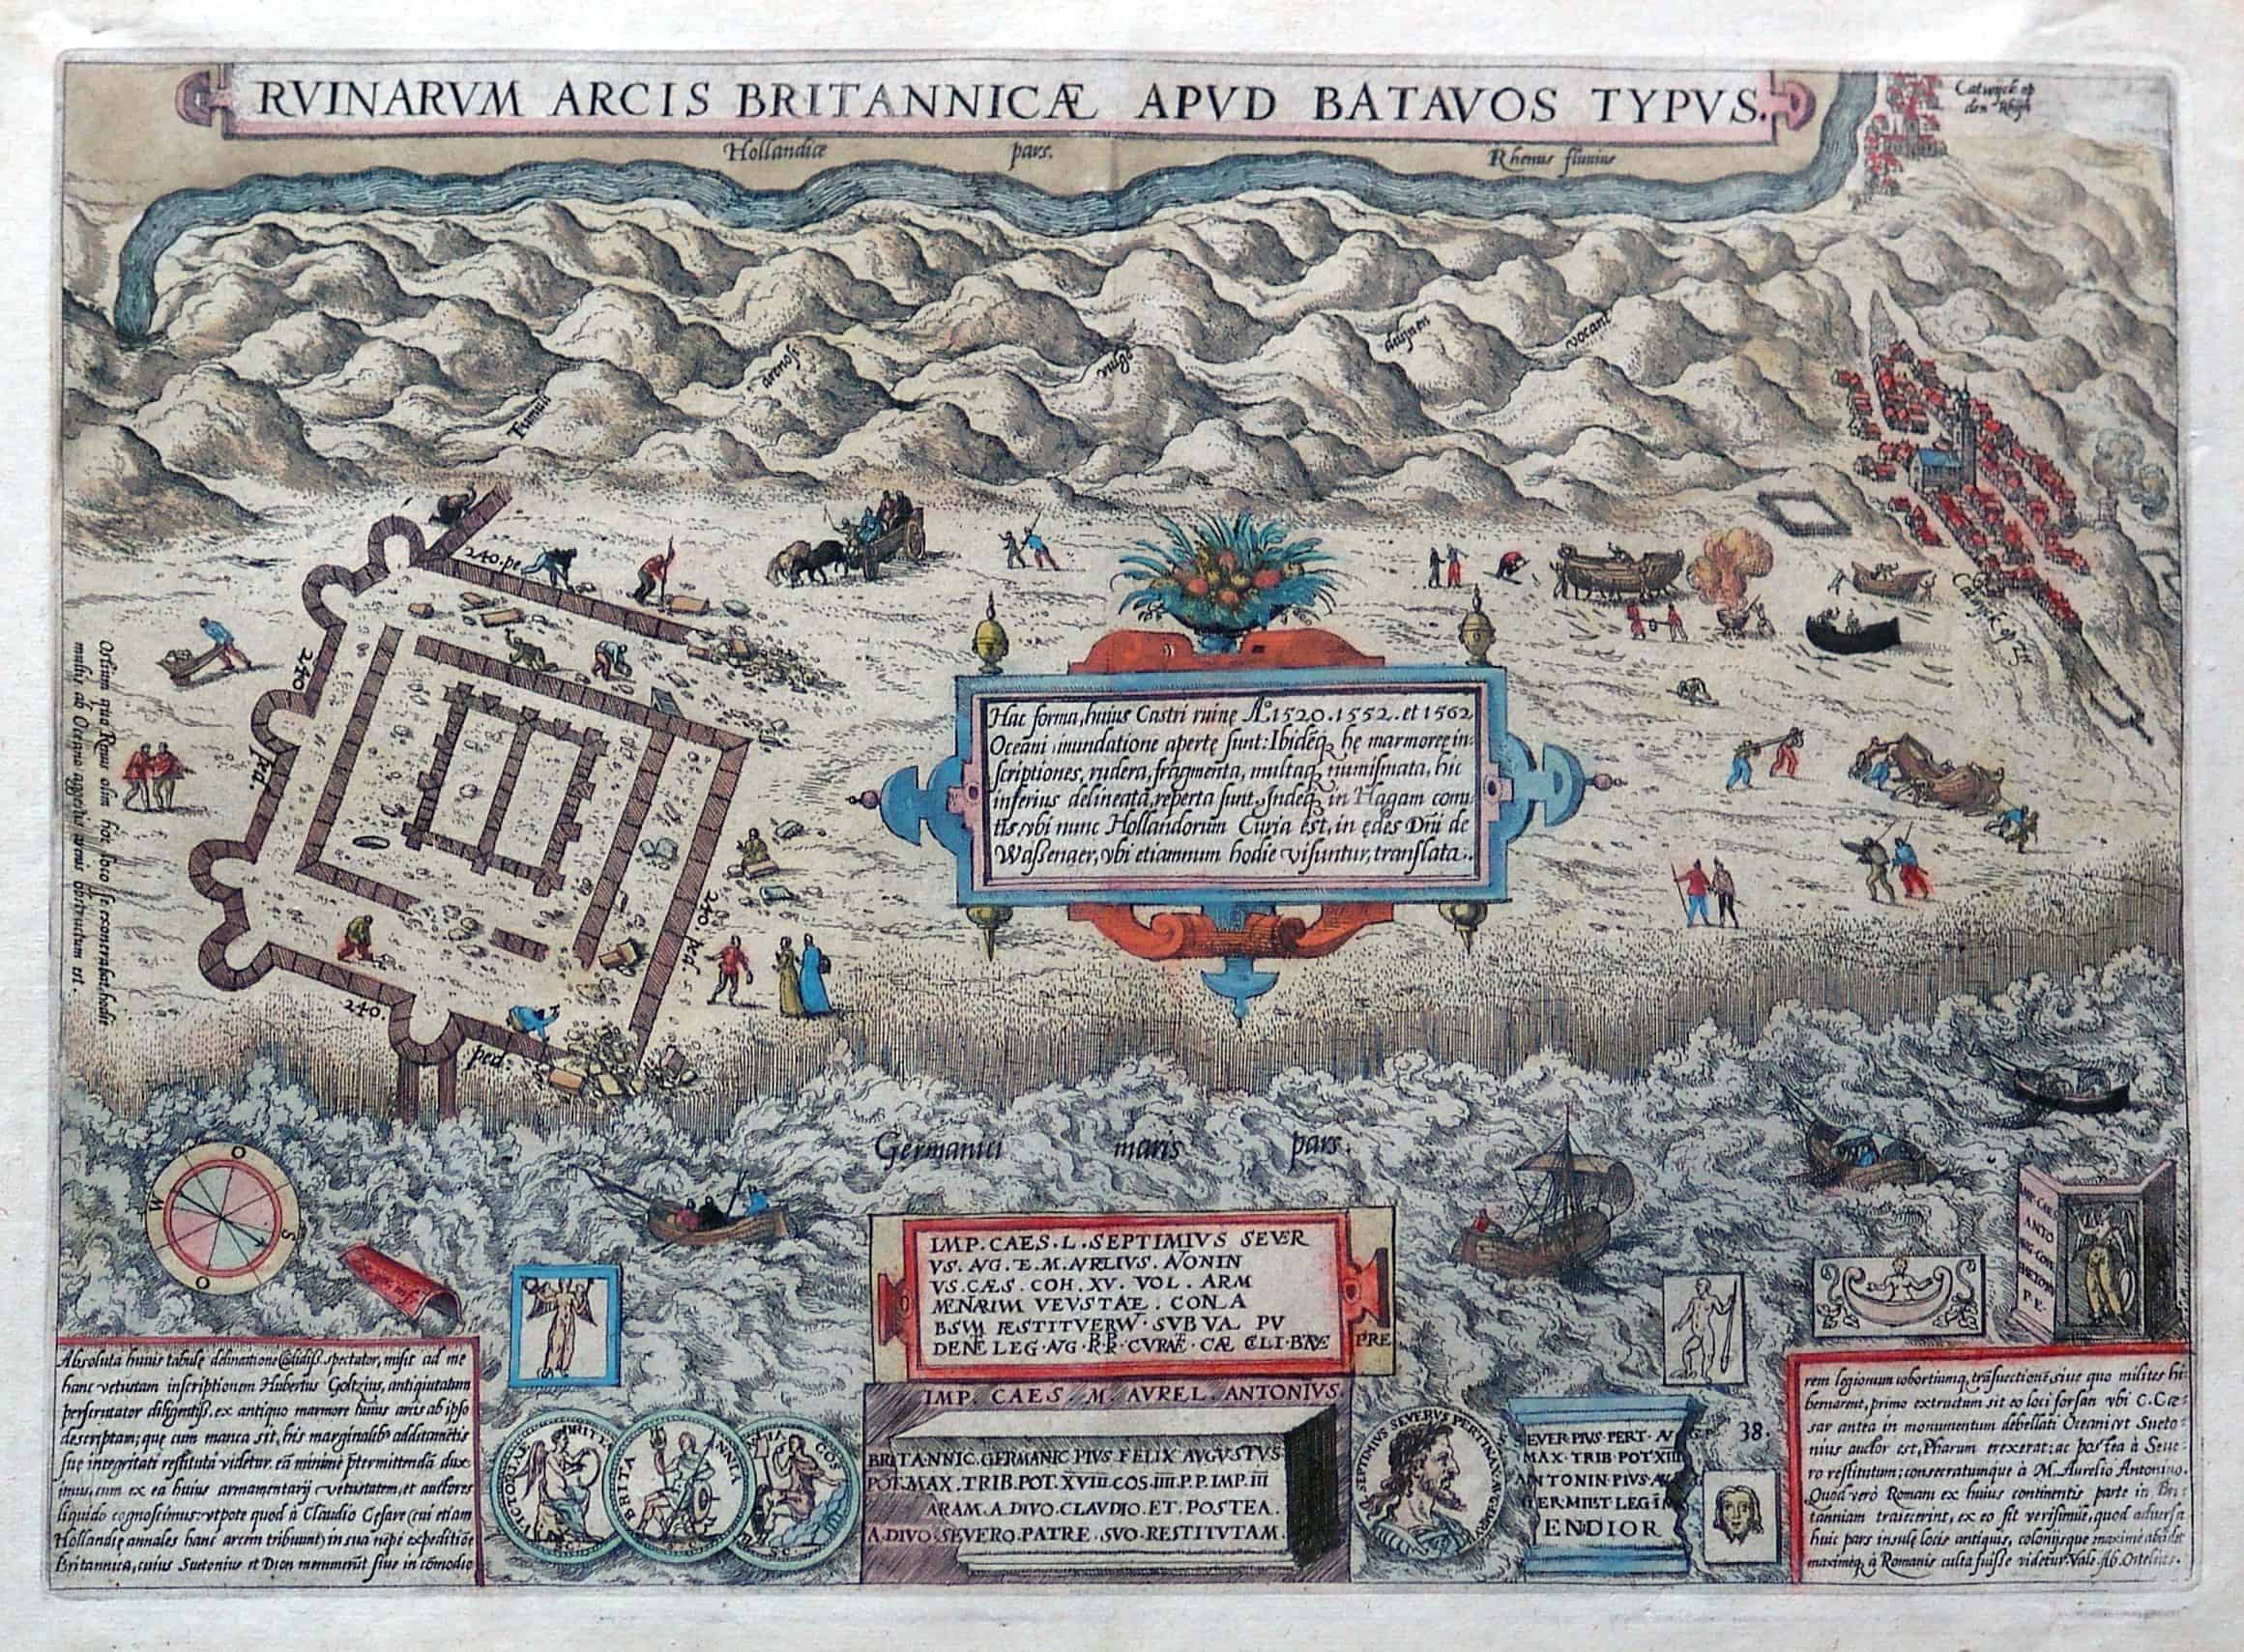 RVINARVM ARCIS BRITANNICÆ APVD BATAVOS TYPVS.
Catwijck op
den Rhijn
Hollandiæ pars.
Rhenus fluuius
Tumuli arenosi vulgo duijnen vocant
240. pe
240 ped.
240. ped.
240. ped.
Ostium quo Renus olim hoc loco se exonerabat, hodie
multis ab Oceano aggestis arenis obstructum est.
Hac forma, huius Castri ruinę Aº. 1520. 1552. et 1562
Oceani inundatione apertę sunt: Ibidēq₃ hę marmoreę in-
scriptiones, rudera, fragmenta, multaq₃ numismata, hic
inferius delineata, reperta sunt. Indeq₃ in Hagam comi-
tis, vbi nunc Hollandorum Curia est, in ędes Dn̄i de
Waßenaer, vbi etiamnum hodie visuntur, translata.
Germanici maris pars.
O
S
O
W
IMP. CAES. L. SEPTIMIVS SEVER
VS. AVG. E. M. AVRLIVS. ANONIN
VS. CÆS. COH. XV. VOL. ARM
BSVM RESTITVERW. SVB VA PV
PRE
IMP. CAES. M. AVREL. ANTONIVS.
BRITANNIC. GERMANIC PIVS FELIX AVGVSTVS
POT. MAX. TRIB. POT. XVIII. COS. IIII. P. P. IMP. III
ARAM. A DIVO. CLAVDIO. ET. POSTEA.
A. DIVO. SEVERO. PATRE. SVO. RESTITVTAM.
VICTORIAE BRITTA
S. C.
BRITANNIA
S. C.
COS
S. C.
SEVERVS PERTINAX AVG
EVER PIVS. PERT. AV
MAX. TRIB. POT XIII
ANTONIN. PIVS. AV
ENDIOR
38.
ANTO
P. E.
Absoluta huius tabulę delineatione Cādidiß. spectator, misit ad me
hanc vetustam inscriptionem Hubertus Goltzius, antiquitatum
perscrutator diligentiß. ex antiquo marmore huius arcis ab ipso
descriptam; quę cum manca sit, his marginalib₉ additamētis
suę integritati restituta videtur. eā minimè p̄termittendā dux-
imus, cum ex ea huius armamentarij vetustatem, et auctores
liquido cognoscimus: vtpote quod à Claudio Cęsare (cui etiam
Hollandię annales hanc arcem tribuunt) in sua nēpe expeditiōe
Britannica, cuius Suetonius et Dion meminerūt siue in cōmodio
rem legionum cohortiumq₃ trāsuectionē, siue quo milites hi-
bernarent, primo extructum sit eo loci forsan vbi C. Cæ-
sar antea in monumentum debellati Oceani vt Sueto-
nius auctor est, Pharum erexerat: ac postea à Seue-
ro restitutum; consecratumque à M. Aurelio Antonino.
Quod verò Romani ex huius continentis parte in Bri-
tanniam traiecerint, ex eo fit verisimile, quod aduersa
huic pars insulę locis antiquis, colonijsque maximè abūdet
maximeq₃ à Romanis culta fuisse videtur. Vale. Ab. Ortelius.